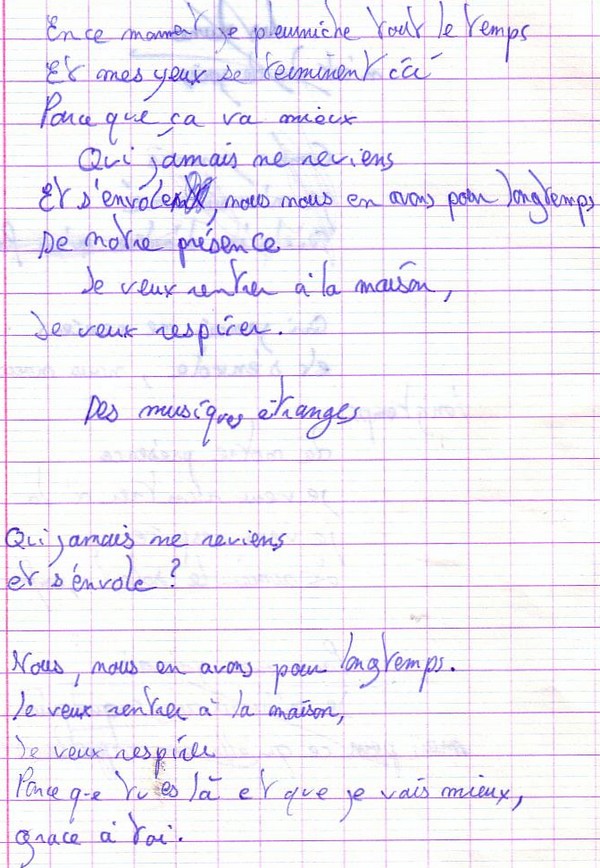 En ce moment je pleurniche tout le temps
Et mes yeux se terminent
Parce que ça va mieux
Qui jamais ne reviens
Et s'envole, nous nous en avons pour longtemps
De notre présence
Je veux rentrer à la maison,
Je veux respirer.
Des musiques étranges
Qui jamais ne reviens
et s'envole ?
Nous, nous en avons pour longtemps.
Je veux rentrer à la maison,
Je veux respirer
Parce que tu es là et que je vais mieux,
grace à toi.